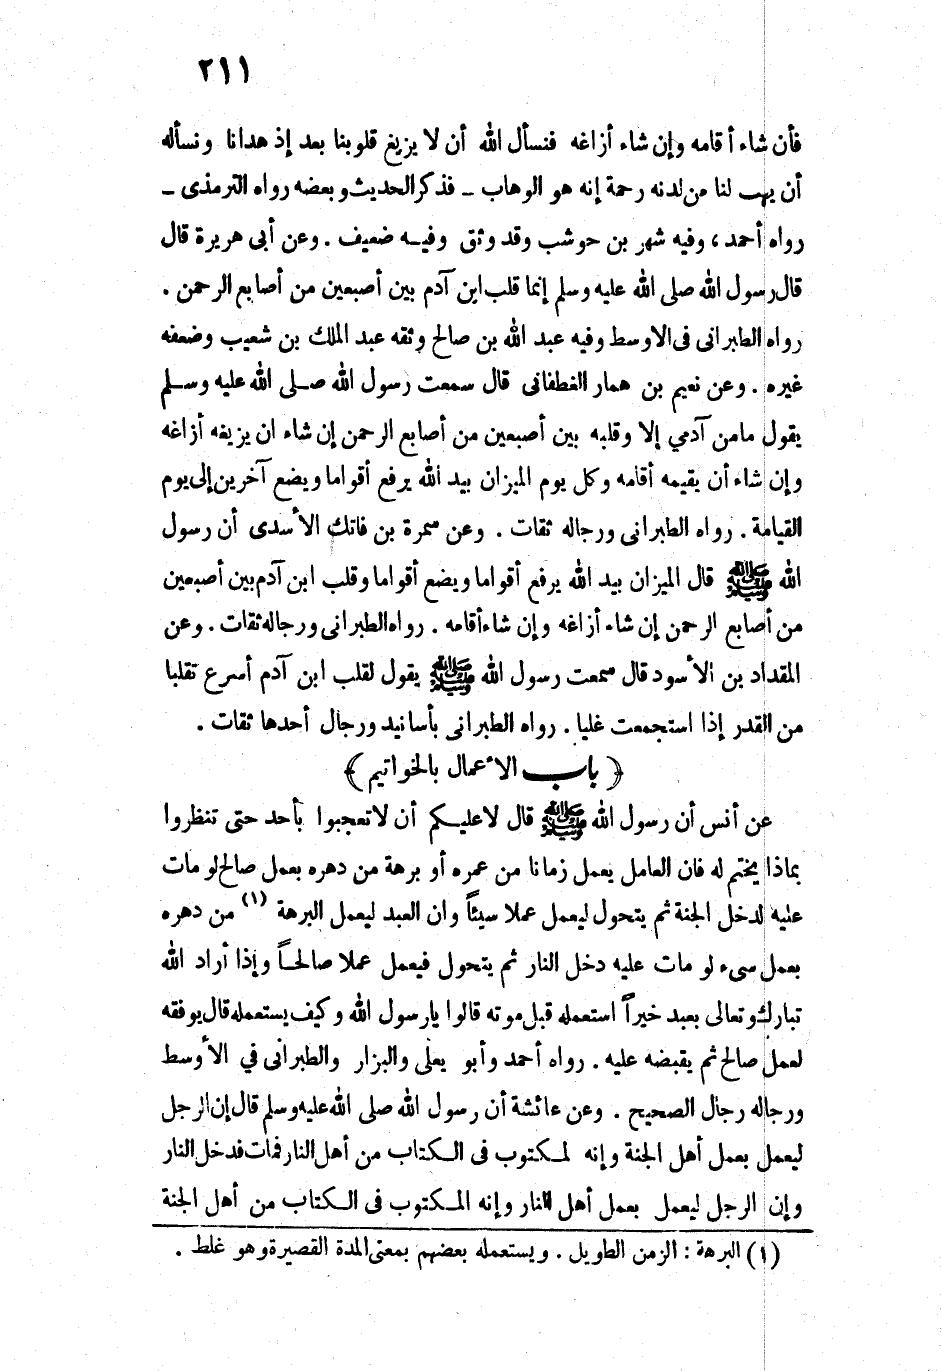 ٢١١
فأن شاء أقامه وإن شاء أزاغه فنسأل الله أن لا يزيغ قلوبنا بعد إذ هدانا ونسأله
أن يهب لنا من لدنه رحمة إنه هو الوهاب ـ فذكر الحديث وبعضه رواه الترمذى ـ
رواه أحمد ، وفيه شهر بن حوشب وقد وثق وفيه ضعيف . وعن أبى هريرة قال
قال رسول الله صلى الله عليه وسلم إنما قلب ابن آدم بين أصبعين من أصابع الرحمن .
رواه الطبرانى فى الاوسط وفيه عبد الله بن صالح وثقه عبد الملك بن شعيب وضعفه
غيره . وعن نعيم بن همار الغطفانى قال سمعت رسول الله صلى الله عليه وسلم
يقول مامن آدمي إلا وقلبه بين أصبعين من أصابع الرحمن إن شاء ان يزيغه أزاغه
وإن شاء أن يقيمه أقامه وكل يوم الميزان بيد الله يرفع أقواما ويضع آخرين إلى يوم
القيامة . رواه الطبرانى ورجاله ثقات . وعن سمرة بن فاتك الأسدى أن رسول
الله ﷺ قال الميزان بيد الله يرفع أقواما ويضع أقواما وقلب ابن آدم بين أصبعين
من أصابع الرحمن إن شاء أزاغه وإن شاء أقامه . رواه الطبرانى ورجاله ثقات . وعن
المقداد بن الأسود قال سمعت رسول الله ﷺ يقول لقلب ابن آدم أسرع تقلبا
من القدر إذا استجمعت غليا . رواه الطبرانى بأسانيد ورجال أحدها ثقات .
﴿ باب الأعمال بالخواتيم ﴾
عن أنس أن رسول الله ﷺ قال لا عليكم أن لا تعجبوا بأحد حتى تنظروا
بماذا يختم له فان العامل يعمل زمانا من عمره أو برهة من دهره بعمل صالح لو مات
عليه لدخل الجنة ثم يتحول ليعمل عملا سيئاً وان العبد ليعمل البرهة (١) من دهره
بعمل سىء لو مات عليه دخل النار ثم يتحول فيعمل عملا صالحاً وإذا أراد الله
تبارك وتعالى بعبد خيراً استعمله قبل موته قالوا يارسول الله وكيف يستعمله قال يوفقه
لعمل صالح ثم يقبضه عليه . رواه أحمد وأبو يعلى والبزار والطبرانى في الأوسط
ورجاله رجال الصحيح . وعن عائشة أن رسول الله صلى الله عليه وسلم قال إن الرجل
ليعمل بعمل أهل الجنة وإنه لمكتوب فى الكتاب من أهل النار فمات فدخل النار
وإن الرجل ليعمل بعمل أهل النار وإنه المكتوب فى الكتاب من أهل الجنة
(١) البرهة : الزمن الطويل . ويستعمله بعضهم بمعنى المدة القصيرة وهو غلط .